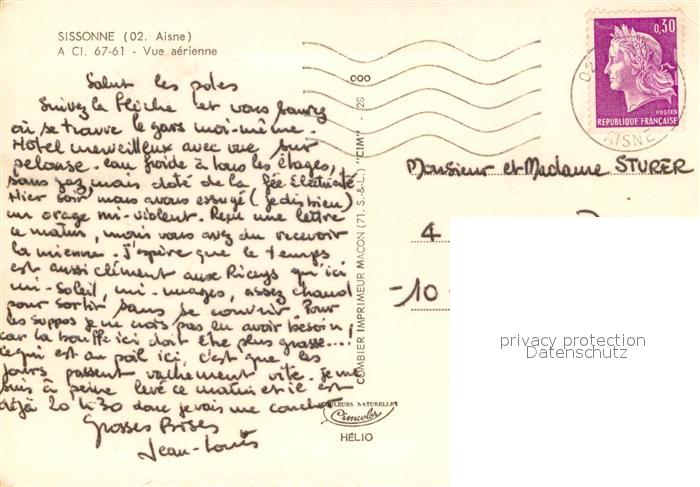 SISSONNE (02. Aisne)
A Cl. 67-61 - Vue aérienne
Salut les potes
Suivez la flèche et vous saurez
où se trouve le gars moi-même.
Hôtel merveilleux avec vue sur
pelouse. eau froide à tous les étages,
sans gaz mais doté de la fée Electricité
Hier soir nous avons essuyé (je dis bien)
un orage mi-violent. Reçu une lettre
ce matin, mais vous avez du recevoir
la mienne. J'espère que le temps
est aussi clément aux Riceys qu'ici
mi-soleil, mi-nuages, assez chaud
pour sortir sans se couvrir. Pour
les suppos je ne crois pas en avoir besoin
car la bouffe ici doit être plus grasse...!
Ce qui est au poil ici, c'est que les
jours passent vachement vite. Je me
suis à peine levé ce matin et il est
déjà 20 h 30 donc je vais me coucher
Grosses Bises
Jean-Louis
COMBIER IMPRIMEUR MACON (71. S.-&-L.) "CIM"
COULEURS NATURELLES
Cimcolor
HÉLIO
0,30
POSTES
REPUBLIQUE FRANÇAISE
02
AISNE
Monsieur et Madame STURER
4
-10
privacy protection
Datenschutz